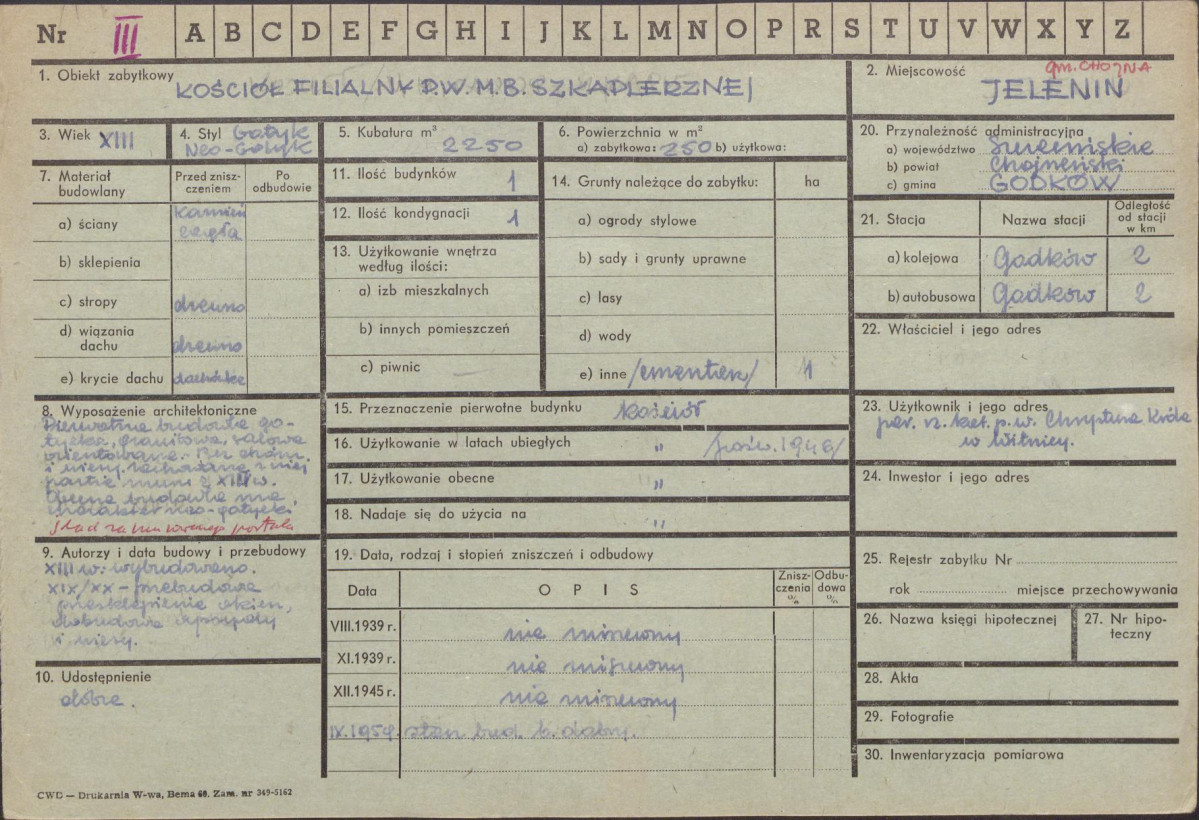 Nr III A B C D E F G H I J K L M N O P R S T U V W X Y Z
1. Obiekt zabytkowy
KOŚCIÓŁ FILIALNY P.W. M.B. SZKAPLERZNEJ
2. Miejscowość
gm. CHOJNA
JELENIN
3. Wiek XIII
4. Styl Gotyk
Neo-Gotyk
5. Kubatura m³
2250
6. Powierzchnia w m²
a) zabytkowa: 250 b) użytkowa:
7. Materiał budowlany
Przed zniszczeniem
Po odbudowie
a) ściany kamień
cegła
b) sklepienia
c) stropy drewno
d) wiązania
dachu drewno
e) krycie dachu dachówka
8. Wyposażenie architektoniczne
Pierwotna budowla go-
tycka, granitowa, salowa
orientowana. Bez chóru
i wieży, zachowane z niej
partie muru z XIII w.
Obecna budowla ma
charakter neo-gotycki
ślad zamurowanego portalu
9. Autorzy i data budowy i przebudowy
XIII w. wybudowano.
XIX/XX – przebudowa
przesklepienie okien,
dobudowa apsydy
i wieży.
10. Udostępnienie
dobre.
11. Ilość budynków 1
12. Ilość kondygnacji 1
13. Użytkowanie wnętrza
według ilości:
a) izb mieszkalnych
b) innych pomieszczeń
c) piwnic —
14. Grunty należące do zabytku: ha
a) ogrody stylowe
b) sady i grunty uprawne
c) lasy
d) wody
e) inne /cmentarz/ 1
15. Przeznaczenie pierwotne budynku kościół
16. Użytkowanie w latach ubiegłych " /pośw. 1946/
17. Użytkowanie obecne "
18. Nadaje się do użycia na "
19. Data, rodzaj i stopień zniszczeń i odbudowy
Data
OPIS
Zniszczenia %
Odbudowa %
VIII.1939 r. nie niszczony
XI.1939 r. nie niszczony
XII.1945 r. nie niszczony
IX.1959. stan bud. b. dobry.
20. Przynależność administracyjna
a) województwo Szczecińskie
b) powiat Chojneński
c) gmina GODKÓW
21. Stacja
Nazwa stacji
Odległość
od stacji
w km
a) kolejowa Godków 2
b) autobusowa Godków 2
22. Właściciel i jego adres
23. Użytkownik i jego adres
par. rz. kat. p.w. Chrystusa Króla
w Witnicy.
24. Inwestor i jego adres
25. Rejestr zabytku Nr
rok miejsce przechowywania
26. Nazwa księgi hipotecznej
27. Nr hipo-
teczny
28. Akta
29. Fotografie
30. Inwentaryzacja pomiarowa
CWD — Drukarnia W-wa, Bema 60. Zam. nr 349-5162